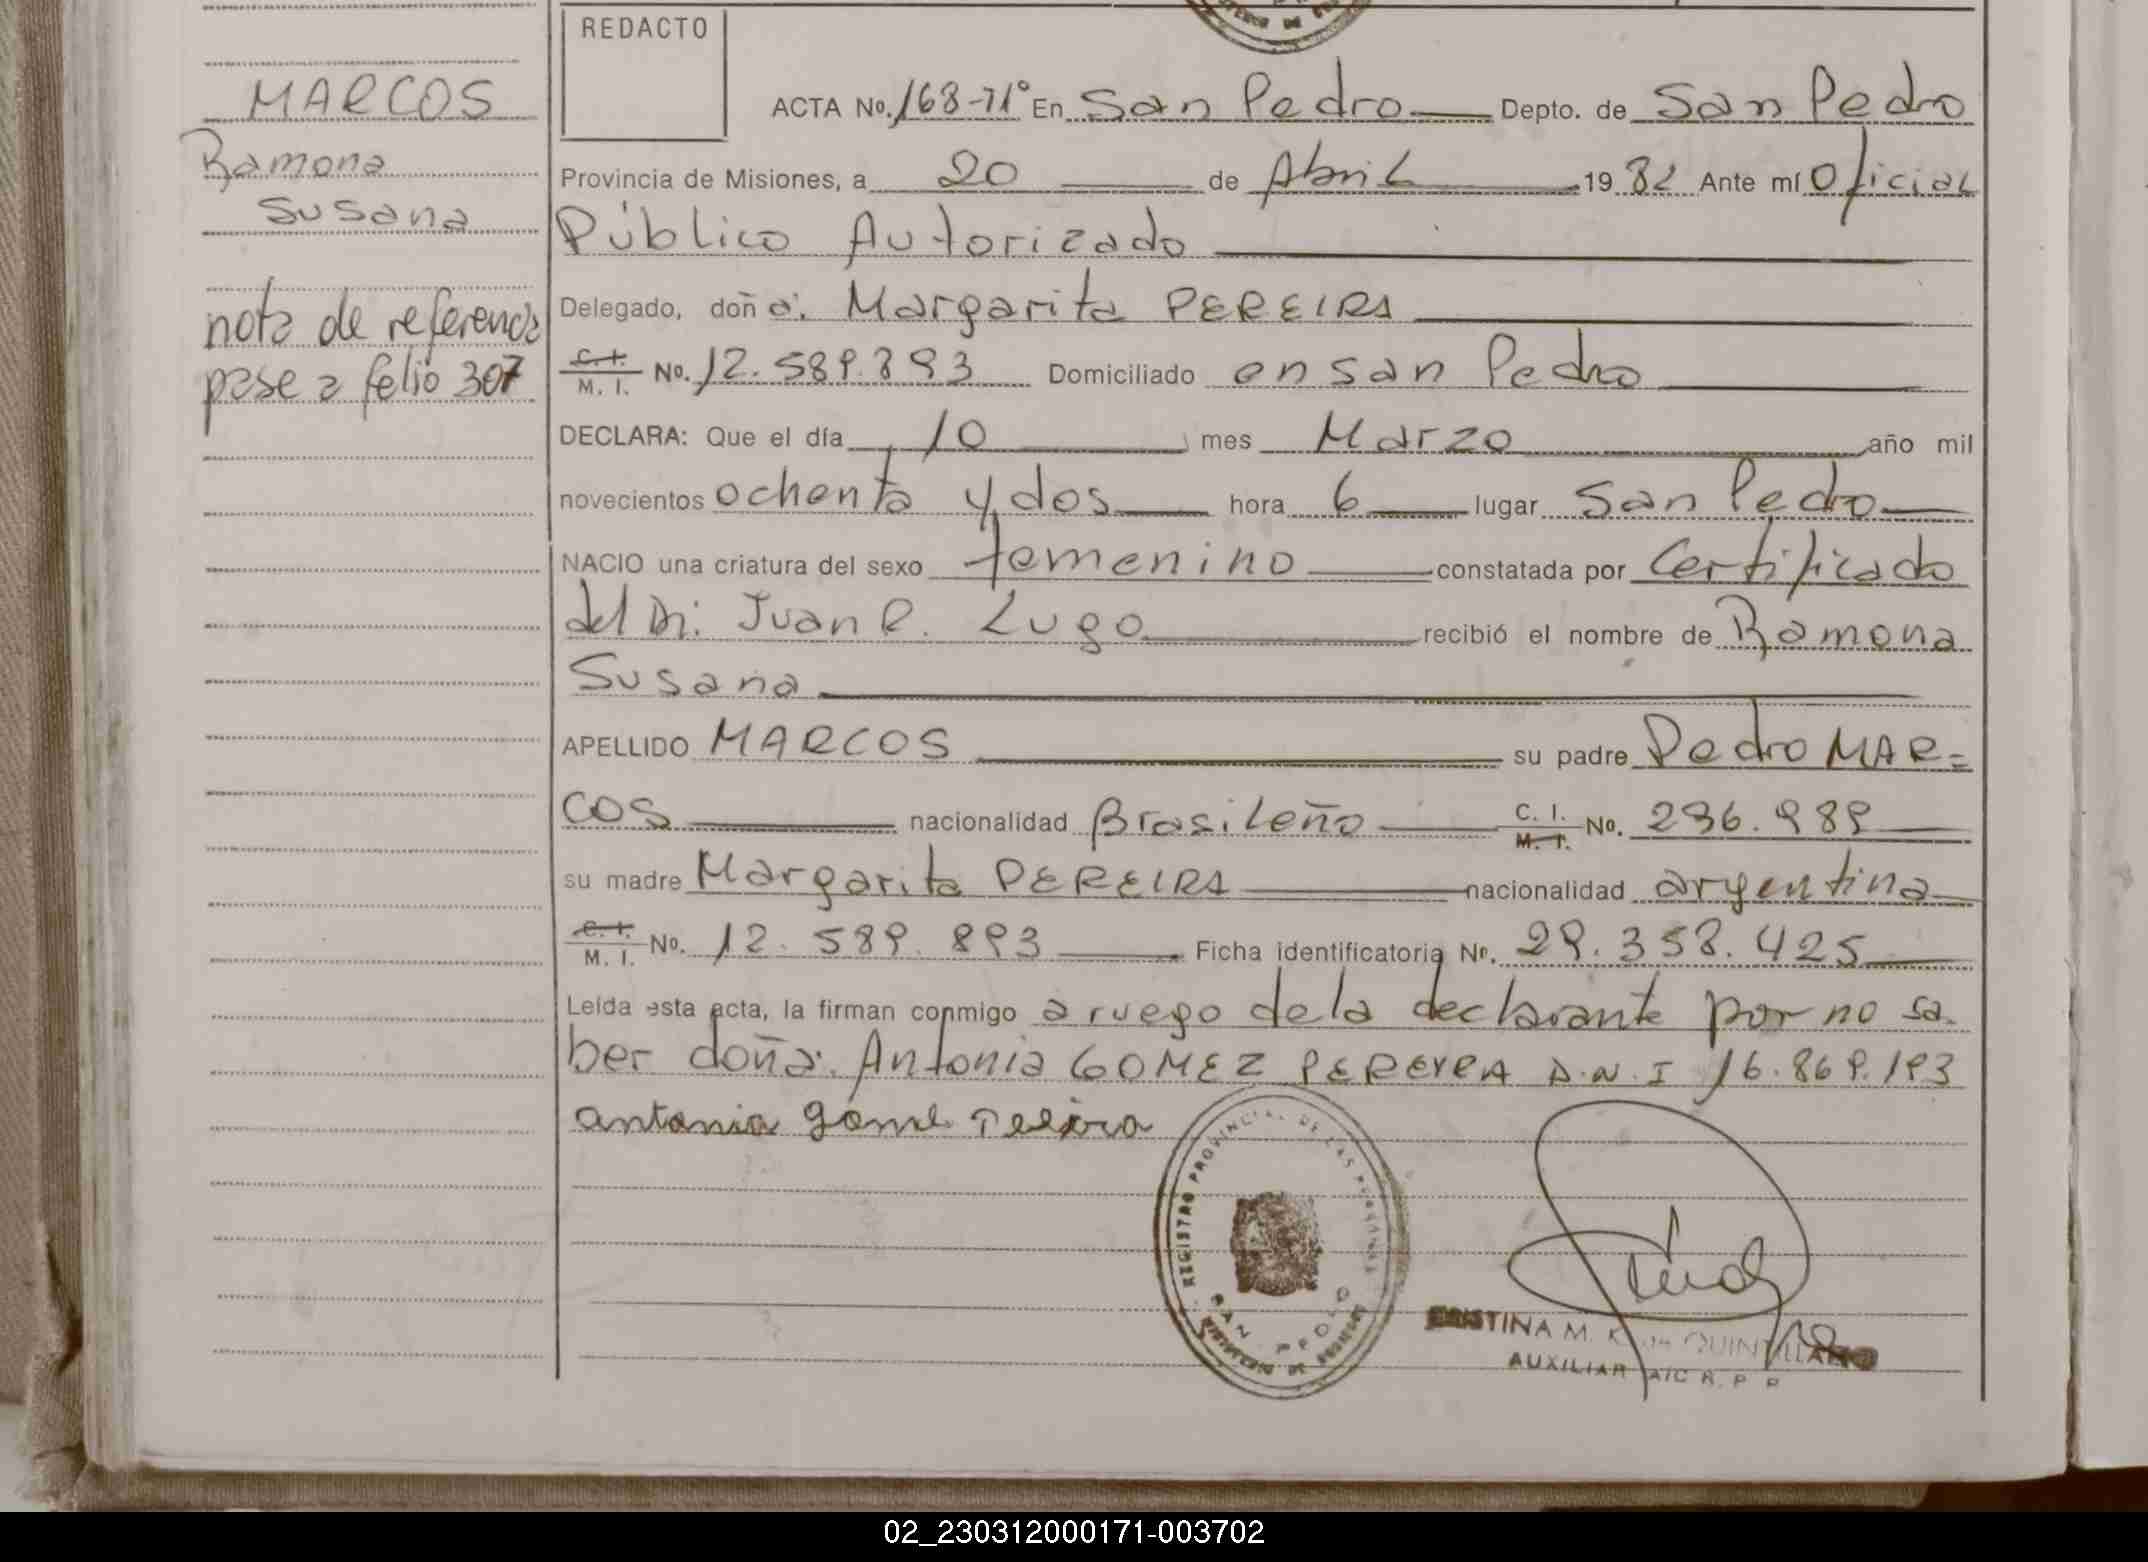 REDACTO
MARCOS
Ramona
Susana
nota de referencia
pase a folio 307
ACTA No. 168-71° En San Pedro Depto. de San Pedro
Provincia de Misiones, a 20 de Abril 1982 Ante mí Oficial
Público Autorizado
Delegado, doña: Margarita PEREIRA
C. I. M. I. No. 12.589.893 Domiciliado en San Pedro
DECLARA: Que el día 10 mes Marzo año mil
novecientos ochenta y dos hora 6 lugar San Pedro
NACIO una criatura del sexo femenino constatada por Certificado
del Dr: Juan R. Lugo recibió el nombre de Ramona
Susana
APELLIDO MARCOS su padre Pedro MAR=
COS nacionalidad Brasileño C. I. M. I. No. 236.989
su madre Margarita PEREIRA nacionalidad argentina
C. I. M. I. No. 12.589.893 Ficha identificatoria No. 29.358.425
Leída esta acta, la firman conmigo a ruego de la declarante por no sa
ber doña: Antonia GOMEZ PEREYRA D.N.I 16.869.193
antonia gome
REGISTRO PROVINCIAL DE LAS PERSONAS
SAN PEDRO
MINISTERIO DE GOBIERNO
CRISTINA M. K. de QUINTILLANO
AUXILIAR A/C R. P. P
02_230312000171-003702